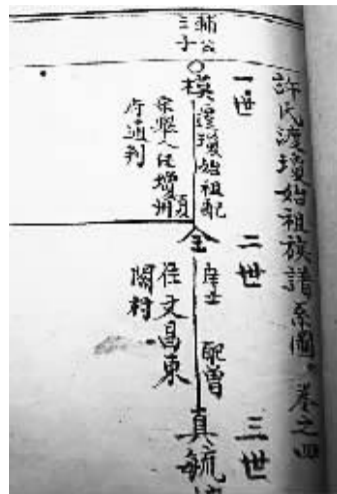 許氏渡瓊始祖族譜系圖。卷之四
一世
二世
三世
輔公
三子
模
渡瓊始祖配
夏
宋舉人任瓊州
府通判
全
庠士 配曾
住文昌東
閣村
真毓